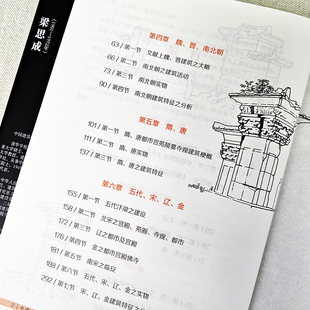 梁思成
第四章 魏、晋、南北朝
63 / 第一节 文献上魏、晋建筑之大略
66 / 第二节 南北朝之建筑活动
73 / 第三节 南北朝实物
90 / 第四节 南北朝建筑特征之分析
第五章 隋、唐
101 / 第一节 隋、唐都市宫苑陵墓寺观建筑梗概
111 / 第二节 隋、唐实物
137 / 第三节 隋、唐之建筑特征
第六章 五代、宋、辽、金
155 / 第一节 五代汴梁之建设
158 / 第二节 北宋之宫殿、苑囿、寺观、都市
172 / 第三节 辽之都市及宫殿
176 / 第四节 金之都市宫殿佛寺
181 / 第五节 南宋之临安
188 / 第六节 五代、宋、辽、金之实物
292 / 第七节 宋、辽、金建筑特征之分